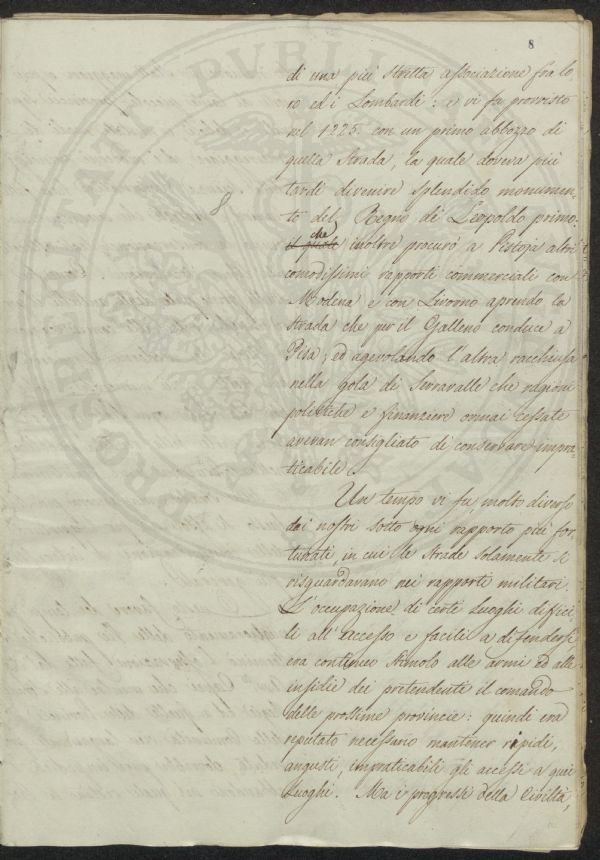 8
di una più stretta associazione fra lo
ro ed i Lombardi: e vi fu provvisto
nel 1225. con un primo abbozzo di
quella Strada, la quale doveva più
tardi divenire splendido monumen-
to del Regno di Leopoldo primo:
il quale che inoltre procurò a Pistoja altri
comodissimi rapporti commerciali con
Modena e con Livorno aprendo la
Strada che per il Galleno conduce a
Pisa, ed agevolando l'altra racchiusa
nella gola di Serravalle che ragioni
politiche e finanziere ormai cessate
avevan consigliato di conservare impra-
ticabile.
Un tempo vi fu, molto diverso
dai nostri sotto ogni rapporto più for-
tunati, in cui le Strade solamente si
risguardavano nei rapporti militari.
L'occupazione di certi Luoghi diffici-
li all'accesso e facili a difendersi
era continuo stimolo alle armi ed alle
insidie dei pretendenti il comando
delle prossime provincie: quindi era
reputato necessario mantener ripidi,
angusti, impraticabili gli accessi a quei
Luoghi. Ma i progressi della Civiltà,
8
PVBLICAE